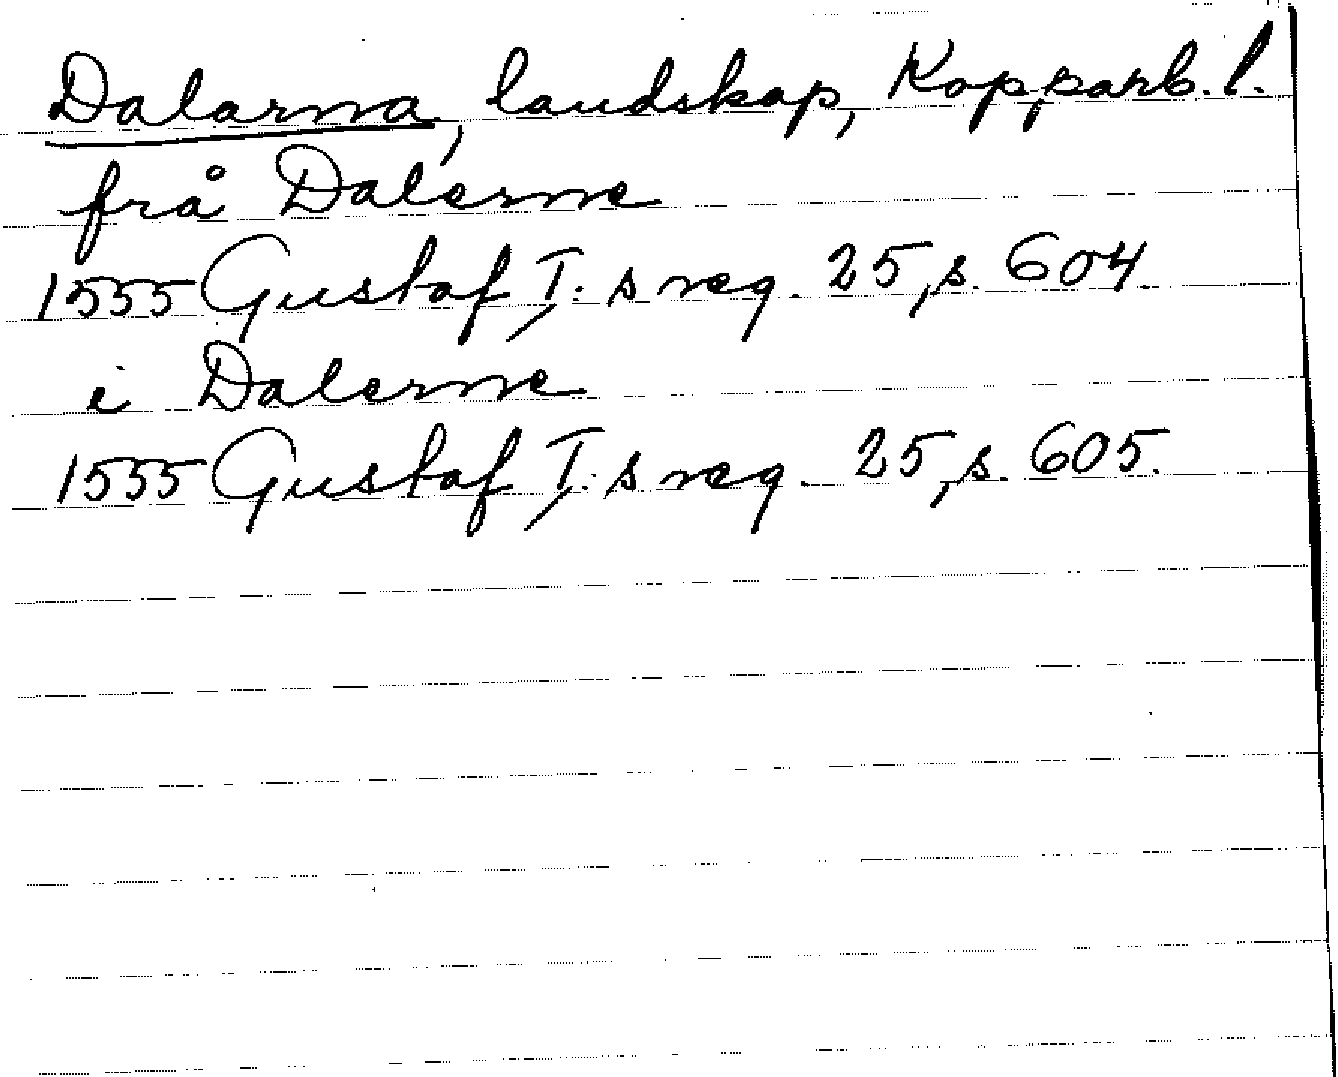 Dalarna, landskap, Kopparb. l.
frå Dalerne
1555 Gustaf I:s reg. 25, s. 604.
i Dalerne
1555 Gustaf I:s reg. 25, s. 605.